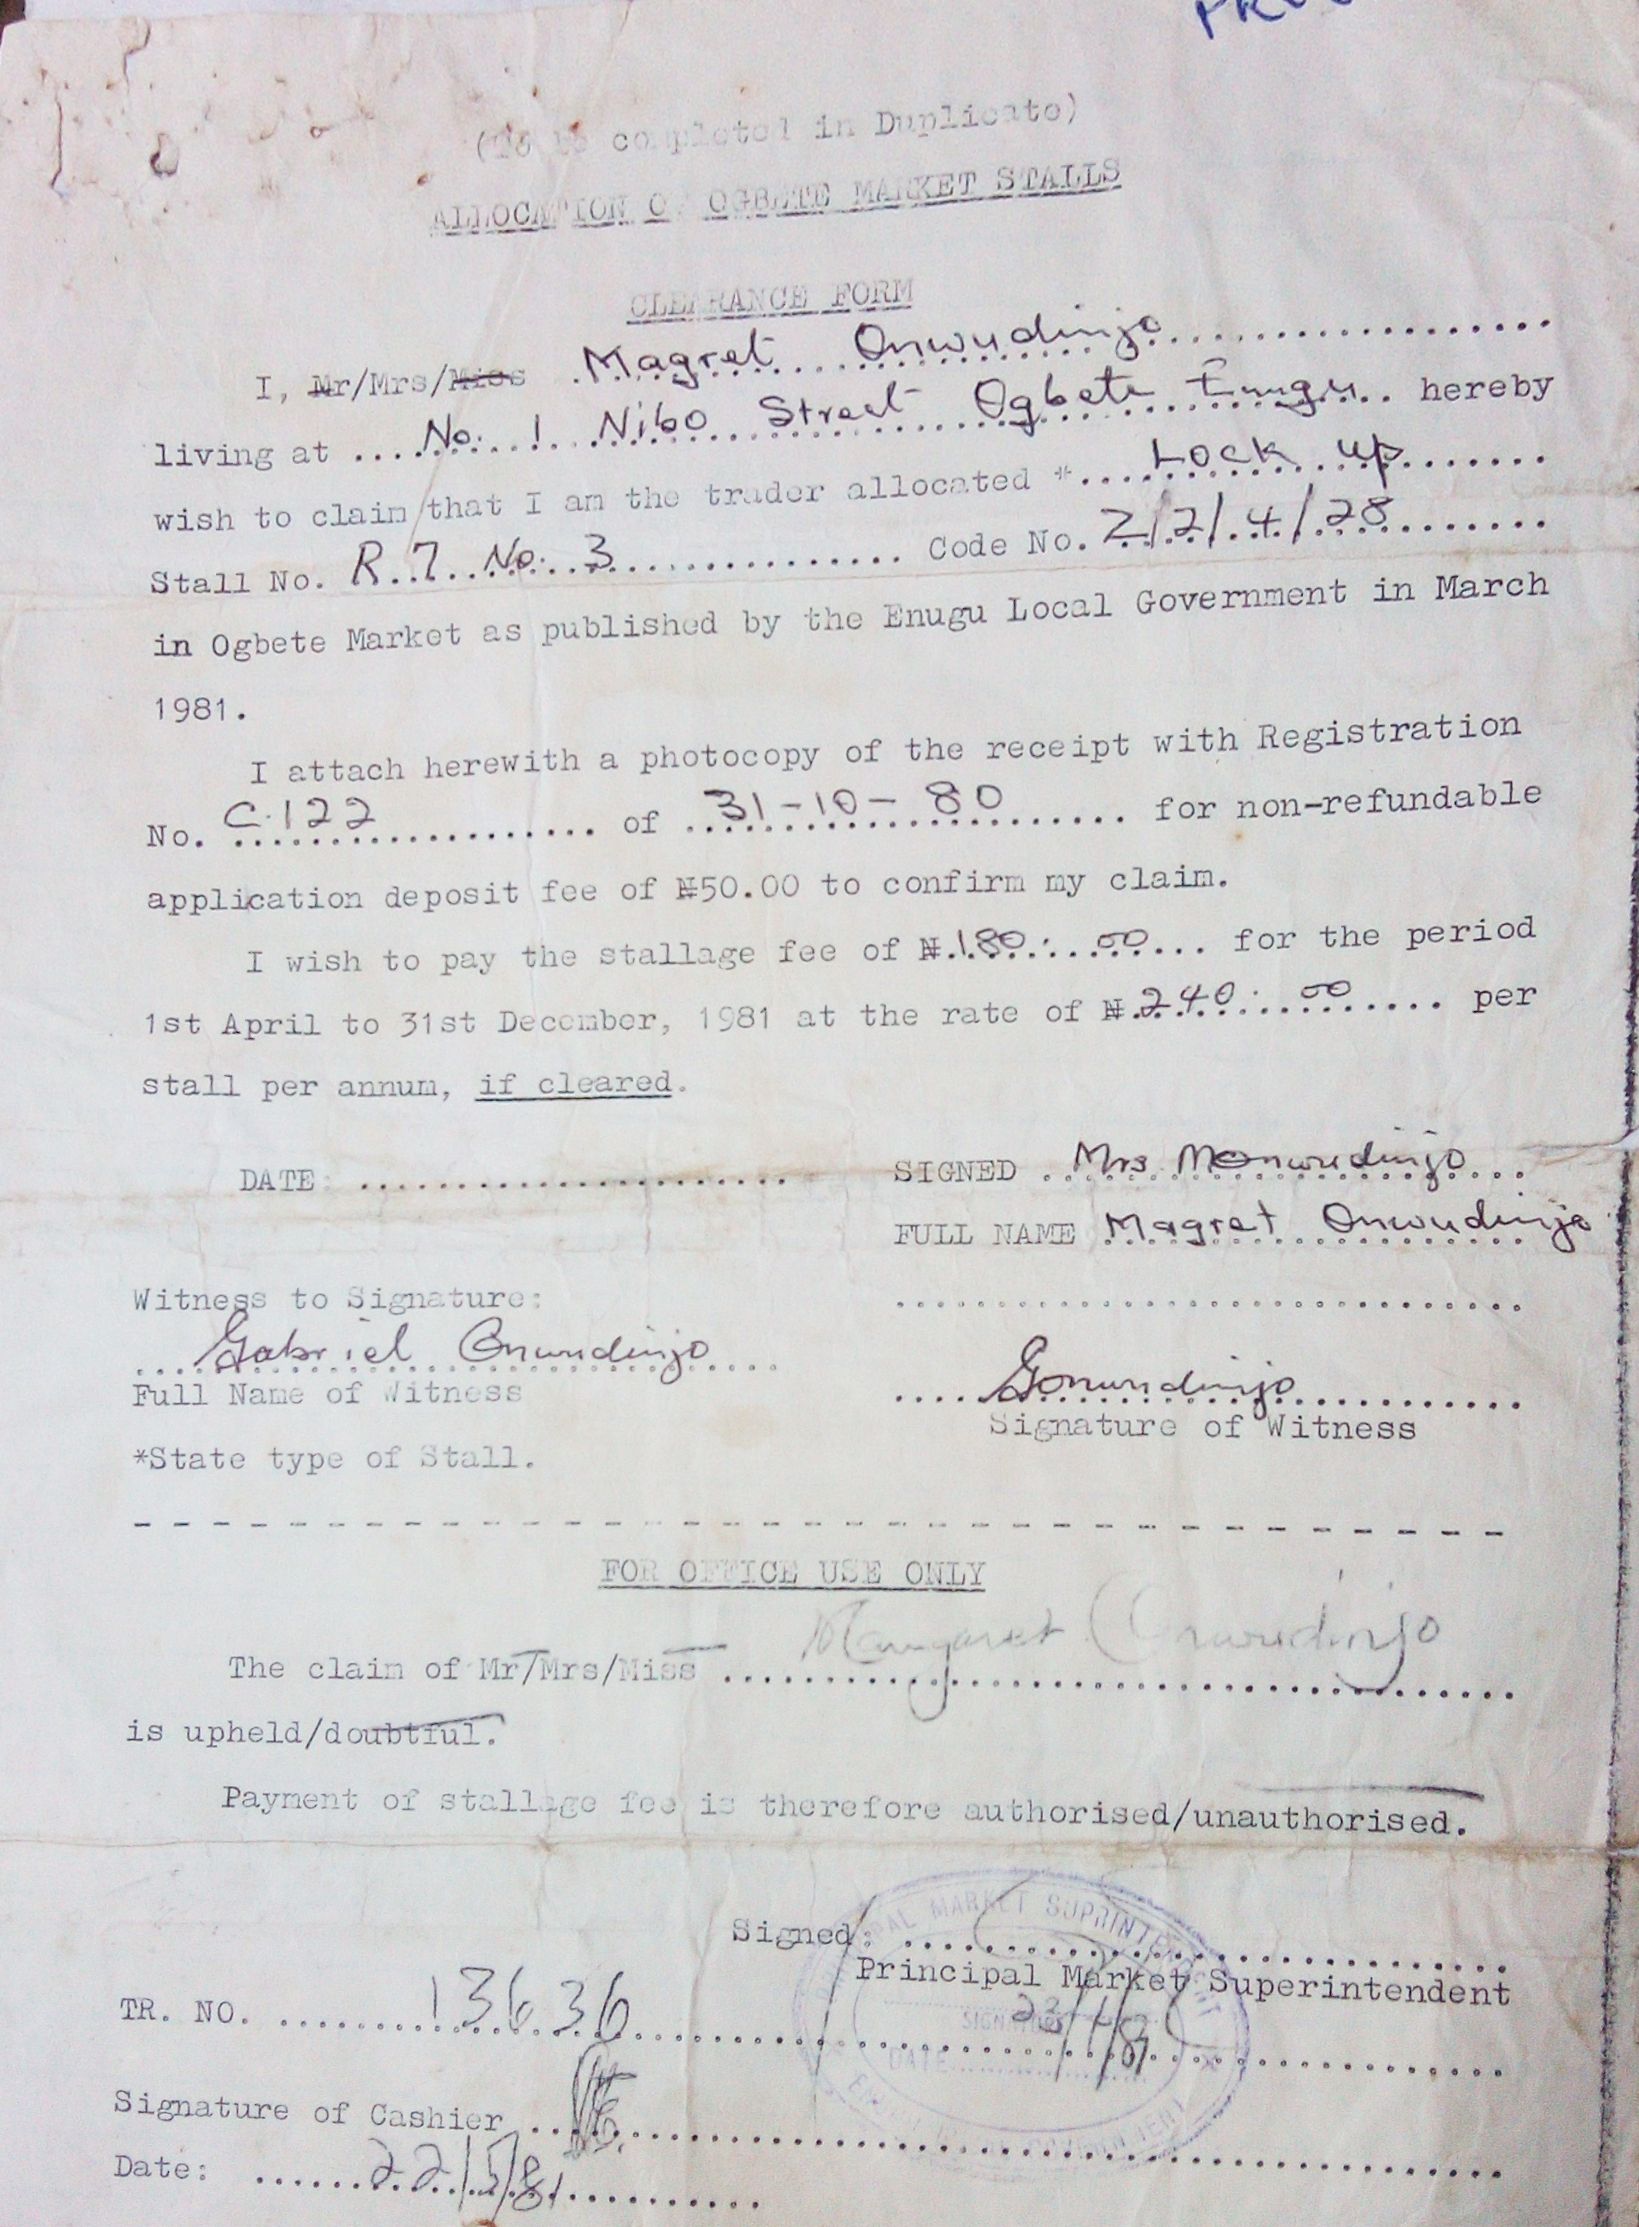 (To be completed in Duplicate)
ALLOCATION OF OGBETE MARKET STALLS
CLEARANCE FORM
I, Mr/Mrs/Miss Magret Onwudinjo
living at No. 1 Nibo Street Ogbete Enugu hereby
wish to claim that I am the trader allocated * Lock up
Stall No. R.7 No. 3 Code No. Z/2/4/28
in Ogbete Market as published by the Enugu Local Government in March
1981.
I attach herewith a photocopy of the receipt with Registration
No. C.122 of 31-10-80 for non-refundable
application deposit fee of ₦50.00 to confirm my claim.
I wish to pay the stallage fee of ₦180:00 for the period
1st April to 31st December, 1981 at the rate of ₦240:00 per
stall per annum, if cleared.
DATE: SIGNED Mrs Monwudinjo
FULL NAME Magret Onwudinjo
Witness to Signature:
Gabriel Onwudinjo
Full Name of Witness
Gonwudinjo
Signature of Witness
*State type of Stall.
FOR OFFICE USE ONLY
The claim of Mr/Mrs/Miss Margaret Onwudinjo
is upheld/doubtful.
Payment of stallage fee is therefore authorised/unauthorised.
MARKET SUPRINTENDENT
Signed:
Principal Market Superintendent
SIGNATURE
DATE
TR. NO. 13636
Signature of Cashier
Date: 22/5/81